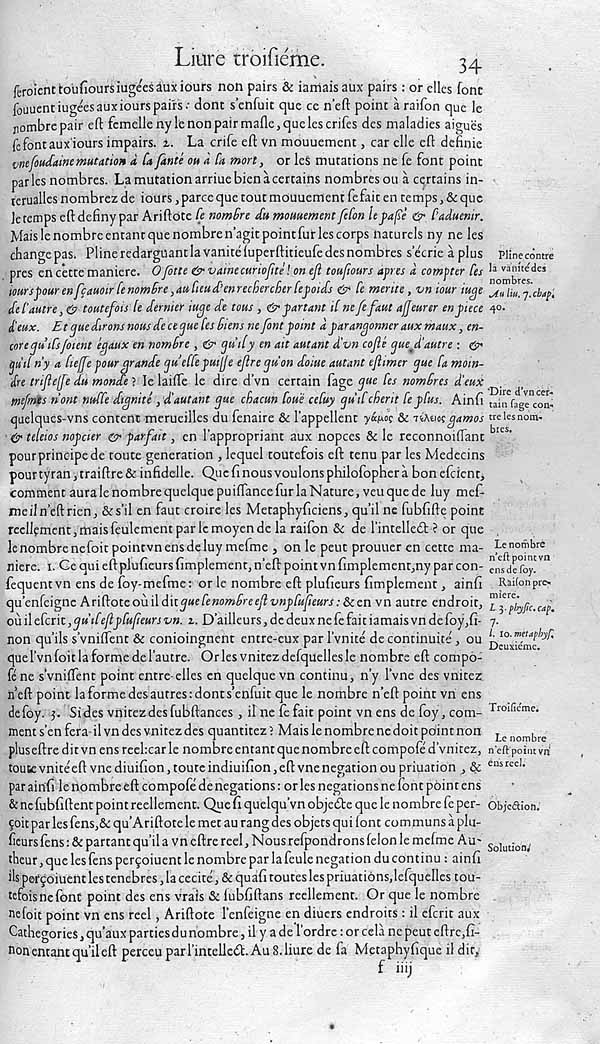 Liure troisiéme. 34
seroient tousiours iugées aux iours non pairs & iamais aux pairs : or elles sont
souuent iugées aux iours pairs : dont s'ensuit que ce n'est point à raison que le
nombre pair est femelle ny le non pair masle, que les crises des maladies aiguës
se font aux iours impairs. 2. La crise est vn mouuement, car elle est definie
vne soudaine mutation à la santé ou à la mort, or les mutations ne se font point
par les nombres. La mutation arriue bien à certains nombres ou à certains in-
terualles nombrez de iours, parce que tout mouuement se fait en temps, & que
le temps est definy par Aristote le nombre du mouuement selon le passé & l'aduenir.
Mais le nombre entant que nombre n'agit point sur les corps naturels ny ne les
change pas. Pline redarguant la vanité superstitieuse des nombres s'écrie à plus
pres en cette maniere. O sotte & vaine curiosité! on est tousiours apres à compter les
iours pour en sçauoir le nombre, au lieu d'en rechercher le poids & le merite, vn iour iuge
de l'autre, & toutefois le dernier iuge de tous, & partant il ne se faut asseurer en piece
d'eux. Et que dirons nous de ce que les biens ne sont point à parangonner aux maux, en-
core qu'ils soient égaux en nombre, & qu'il y en ait autant d'vn costé que d'autre : &
qu'il n'y a liesse pour grande qu'elle puisse estre qu'on doiue autant estimer que la moin-
dre tristesse du monde? Ie laisse le dire d'vn certain sage que les nombres d'eux
mesmes n'ont nulle dignité, d'autant que chacun louë celuy qu'il cherit le plus. Ainsi
quelques-vns content merueilles du senaire & l'appellent γάμος & τέλειος gamos
& teleios nopcier & parfait, en l'appropriant aux nopces & le reconnoissant
pour principe de toute generation, lequel toutefois est tenu par les Medecins
pour tyran, traistre & infidelle. Que si nous voulons philosopher à bon escient,
comment aura le nombre quelque puissance sur la Nature, veu que de luy mes-
me il n'est rien, & s'il en faut croire les Metaphysiciens, qu'il ne subsiste point
reellement, mais seulement par le moyen de la raison & de l'intellect? or que
le nombre ne soit point vn ens de luy mesme, on le peut prouuer en cette ma-
niere. 1. Ce qui est plusieurs simplement, n'est point vn simplement, ny par con-
sequent vn ens de soy-mesme : or le nombre est plusieurs simplement, ainsi
qu'enseigne Aristote où il dit que le nombre est vn plusieurs : & en vn autre endroit,
où il escrit, qu'il est plusieurs vn. 2. D'ailleurs, de deux ne se fait iamais vn de soy, si-
non qu'ils s'vnissent & conioingnent entre-eux par l'vnité de continuité, ou
que l'vn soit la forme de l'autre. Or les vnitez desquelles le nombre est compo-
sé ne s'vnissent point entre-elles en quelque vn continu, n'y l'vne des vnitez
n'est point la forme des autres : dont s'ensuit que le nombre n'est point vn ens
de soy. 3. Si des vnitez des substances, il ne se fait point vn ens de soy, com-
ment s'en fera-il vn des vnitez des quantitez? Mais le nombre ne doit point non
plus estre dit vn ens reel : car le nombre entant que nombre est composé d'vnitez,
toute vnité est vne diuision, toute indiuision, est vne negation ou priuation, &
par ainsi le nombre est composé de negations : or les negations ne sont point ens
& ne subsistent point reellement. Que si quelqu'vn objecte que le nombre se per-
çoit par les sens, & qu'Aristote le met au rang des objets qui sont communs à plu-
sieurs sens : & partant qu'il a vn estre reel, Nous respondrons selon le mesme Au-
theur, que les sens perçoiuent le nombre par la seule negation du continu : ainsi
ils perçoiuent les tenebres, la cecité, & quasi toutes les priuations, lesquelles tou-
tefois ne sont point des ens vrais & subsistans reellement. Or que le nombre
ne soit point vn ens reel, Aristote l'enseigne en diuers endroits : il escrit aux
Cathegories, qu'aux parties du nombre, il y a de l'ordre : or celà ne peut estre, si-
non entant qu'il est perceu par l'intellect. Au 8. liure de sa Metaphysique il dit,
f iiij
Pline contre
la vanité des
nombres.
Au liu. 7. chap.
40.
Dire d'vn cer-
tain sage con-
tre les nom-
bres.
Le nombre
n'est point vn
ens de soy.
Raison pre-
miere.
L 3. physic. cap.
7.
l. 10. metaphys.
Deuxiéme.
Troisiéme.
Le nombre
n'est point vn
ens reel.
Objection.
Solution.